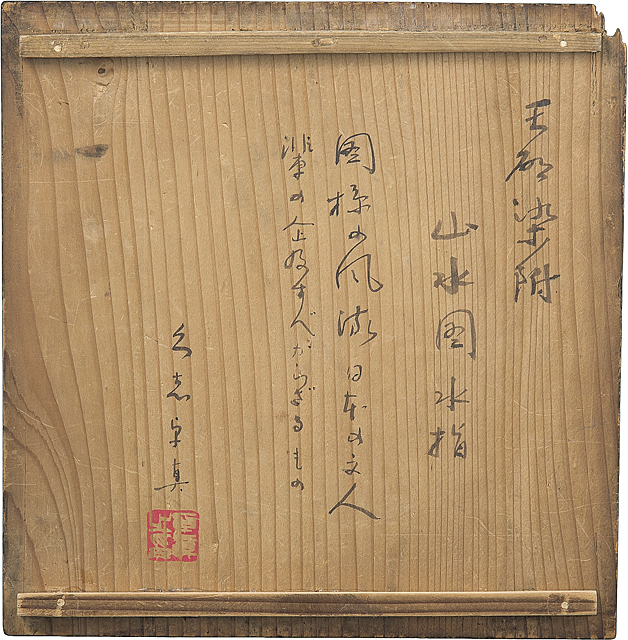 天啓染附
山水図水指
図様の風流日本の文人
輩の企及すべからざるもの
久志卓真